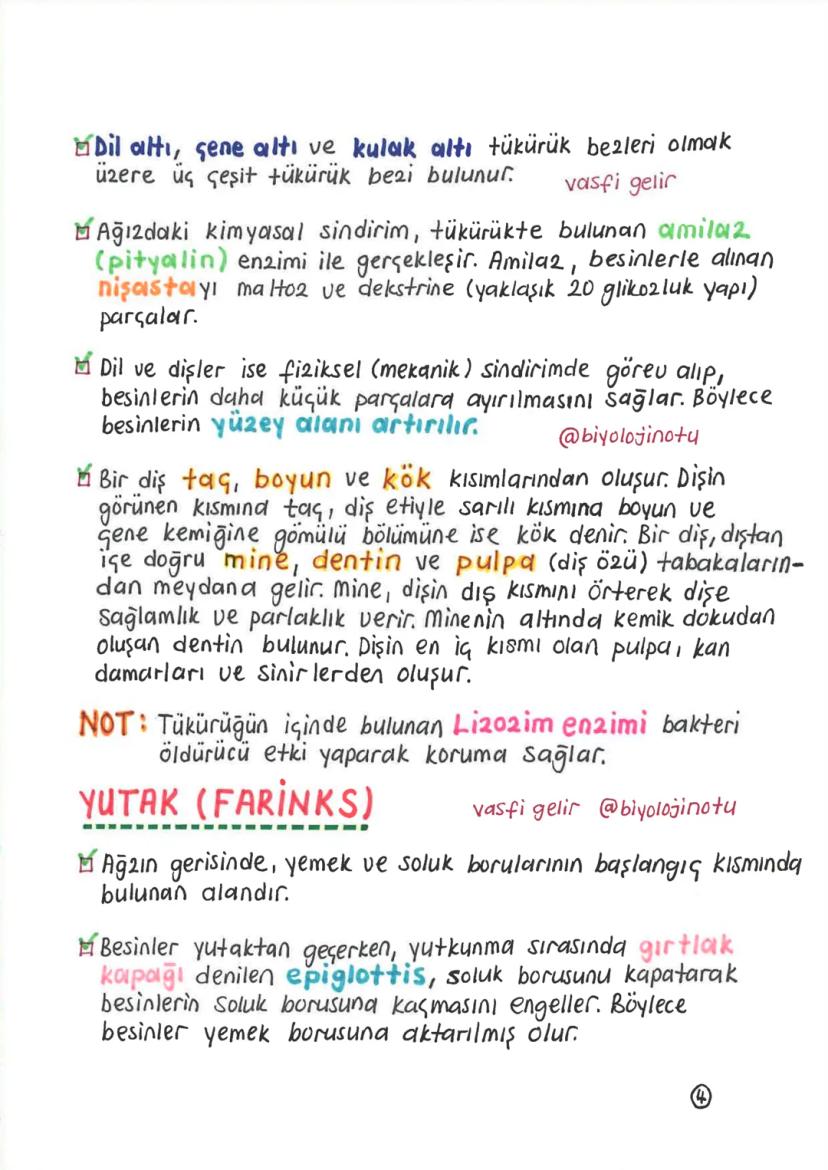 Dil altı, çene altı ve kulak altı tükürük bezleri olmak
üzere üç çeşit tükürük bezi bulunur.
vasfi gelir
Ağızdaki kimyasal sindirim, tükürükte bulunan amilaz
(pityalin) enzimi ile gerçekleşir. Amilaz, besinlerle alınan
nişastayı maltoz ve dekstrine (yaklaşık 20 glikozluk yapı)
parçalar.
Dil ve dişler ise fiziksel (mekanik) sindirimde görev alıp,
besinlerin daha küçük parçalara ayırılmasını sağlar. Böylece
besinlerin yüzey alanı artırılır.
@biyolojinotu
Bir diş taç, boyun ve kök kısımlarından oluşur. Dişin
görünen kısmına taç, diş etiyle sarılı kısmına boyun ve
çene kemiğine gömülü bölümüne ise kök denir. Bir diş, dıştan
içe doğru mine, dentin ve pulpa (diş özü) tabakaların-
dan meydana gelir. Mine, dişin dış kısmını örterek dişe
sağlamlık ve parlaklık verir. Minenin altında kemik dokudan
oluşan dentin bulunur. Dişin en iç kısmı olan pulpa, kan
damarları ve sinirlerden oluşur.
NOT: Tükürüğün içinde bulunan Lizozim enzimi bakteri
öldürücü etki yaparak koruma sağlar.
YUTAK (FARİNKS)
vasfi gelir @biyolojinotu
Ağzın gerisinde, yemek ve soluk borularının başlangıç kısmında
bulunan alandır.
Besinler yutaktan geçerken, yutkunma sırasında gırtlak
kapağı denilen epiglottis, soluk borusunu kapatarak
besinlerin soluk borusuna kaçmasını engeller. Böylece
besinler yemek borusuna aktarılmış olur.
4